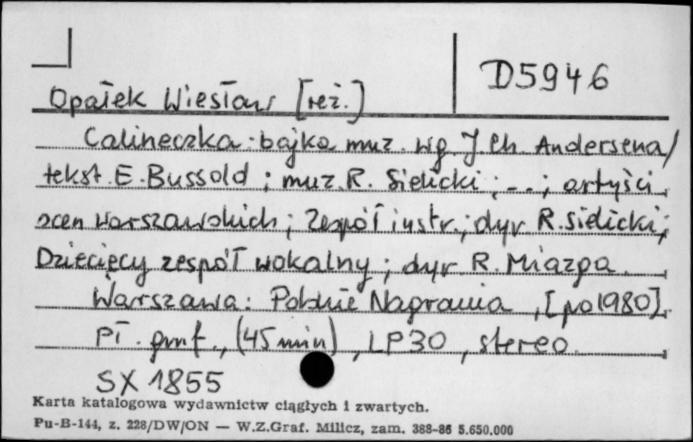 D5946
Opałek Wiesław [reż.]
Calineczka : bajka muz. wg. J. Ch. Andersena/
tekst. E. Bussold ; muz. R. Sielicki ; -..; artyści
scen warszawskich ; Zespół instr.; dyr R. Sielicki;
Dziecięcy zespół wokalny ; dyr. R. Miazga.
Warszawa : Polskie Nagrania, [po 1980].
Pł. gmf., (45 min), LP30, stereo.
SX 1855
Karta katalogowa wydawnictw ciągłych i zwartych.
Pu-B-144, z. 228/DW/ON — W.Z.Graf. Milicz, zam. 388-86 5.650.000